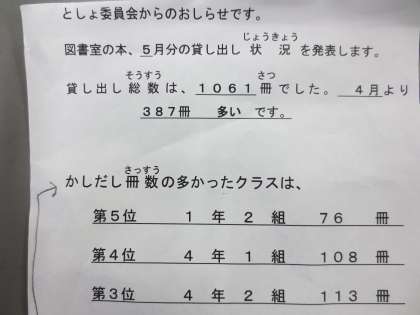 としょ委員会からのおしらせです。
図書室の本、5月分の貸し出し状況を発表します。
じょうきょう
貸し出し総数は、1061冊でした。 4月より
そうすう さつ
387冊 多い です。
かしだし冊数の多かったクラスは、
さっすう
第5位 1年2組 76 冊
第4位 4年1組 108 冊
第3位 4年2組 113 冊